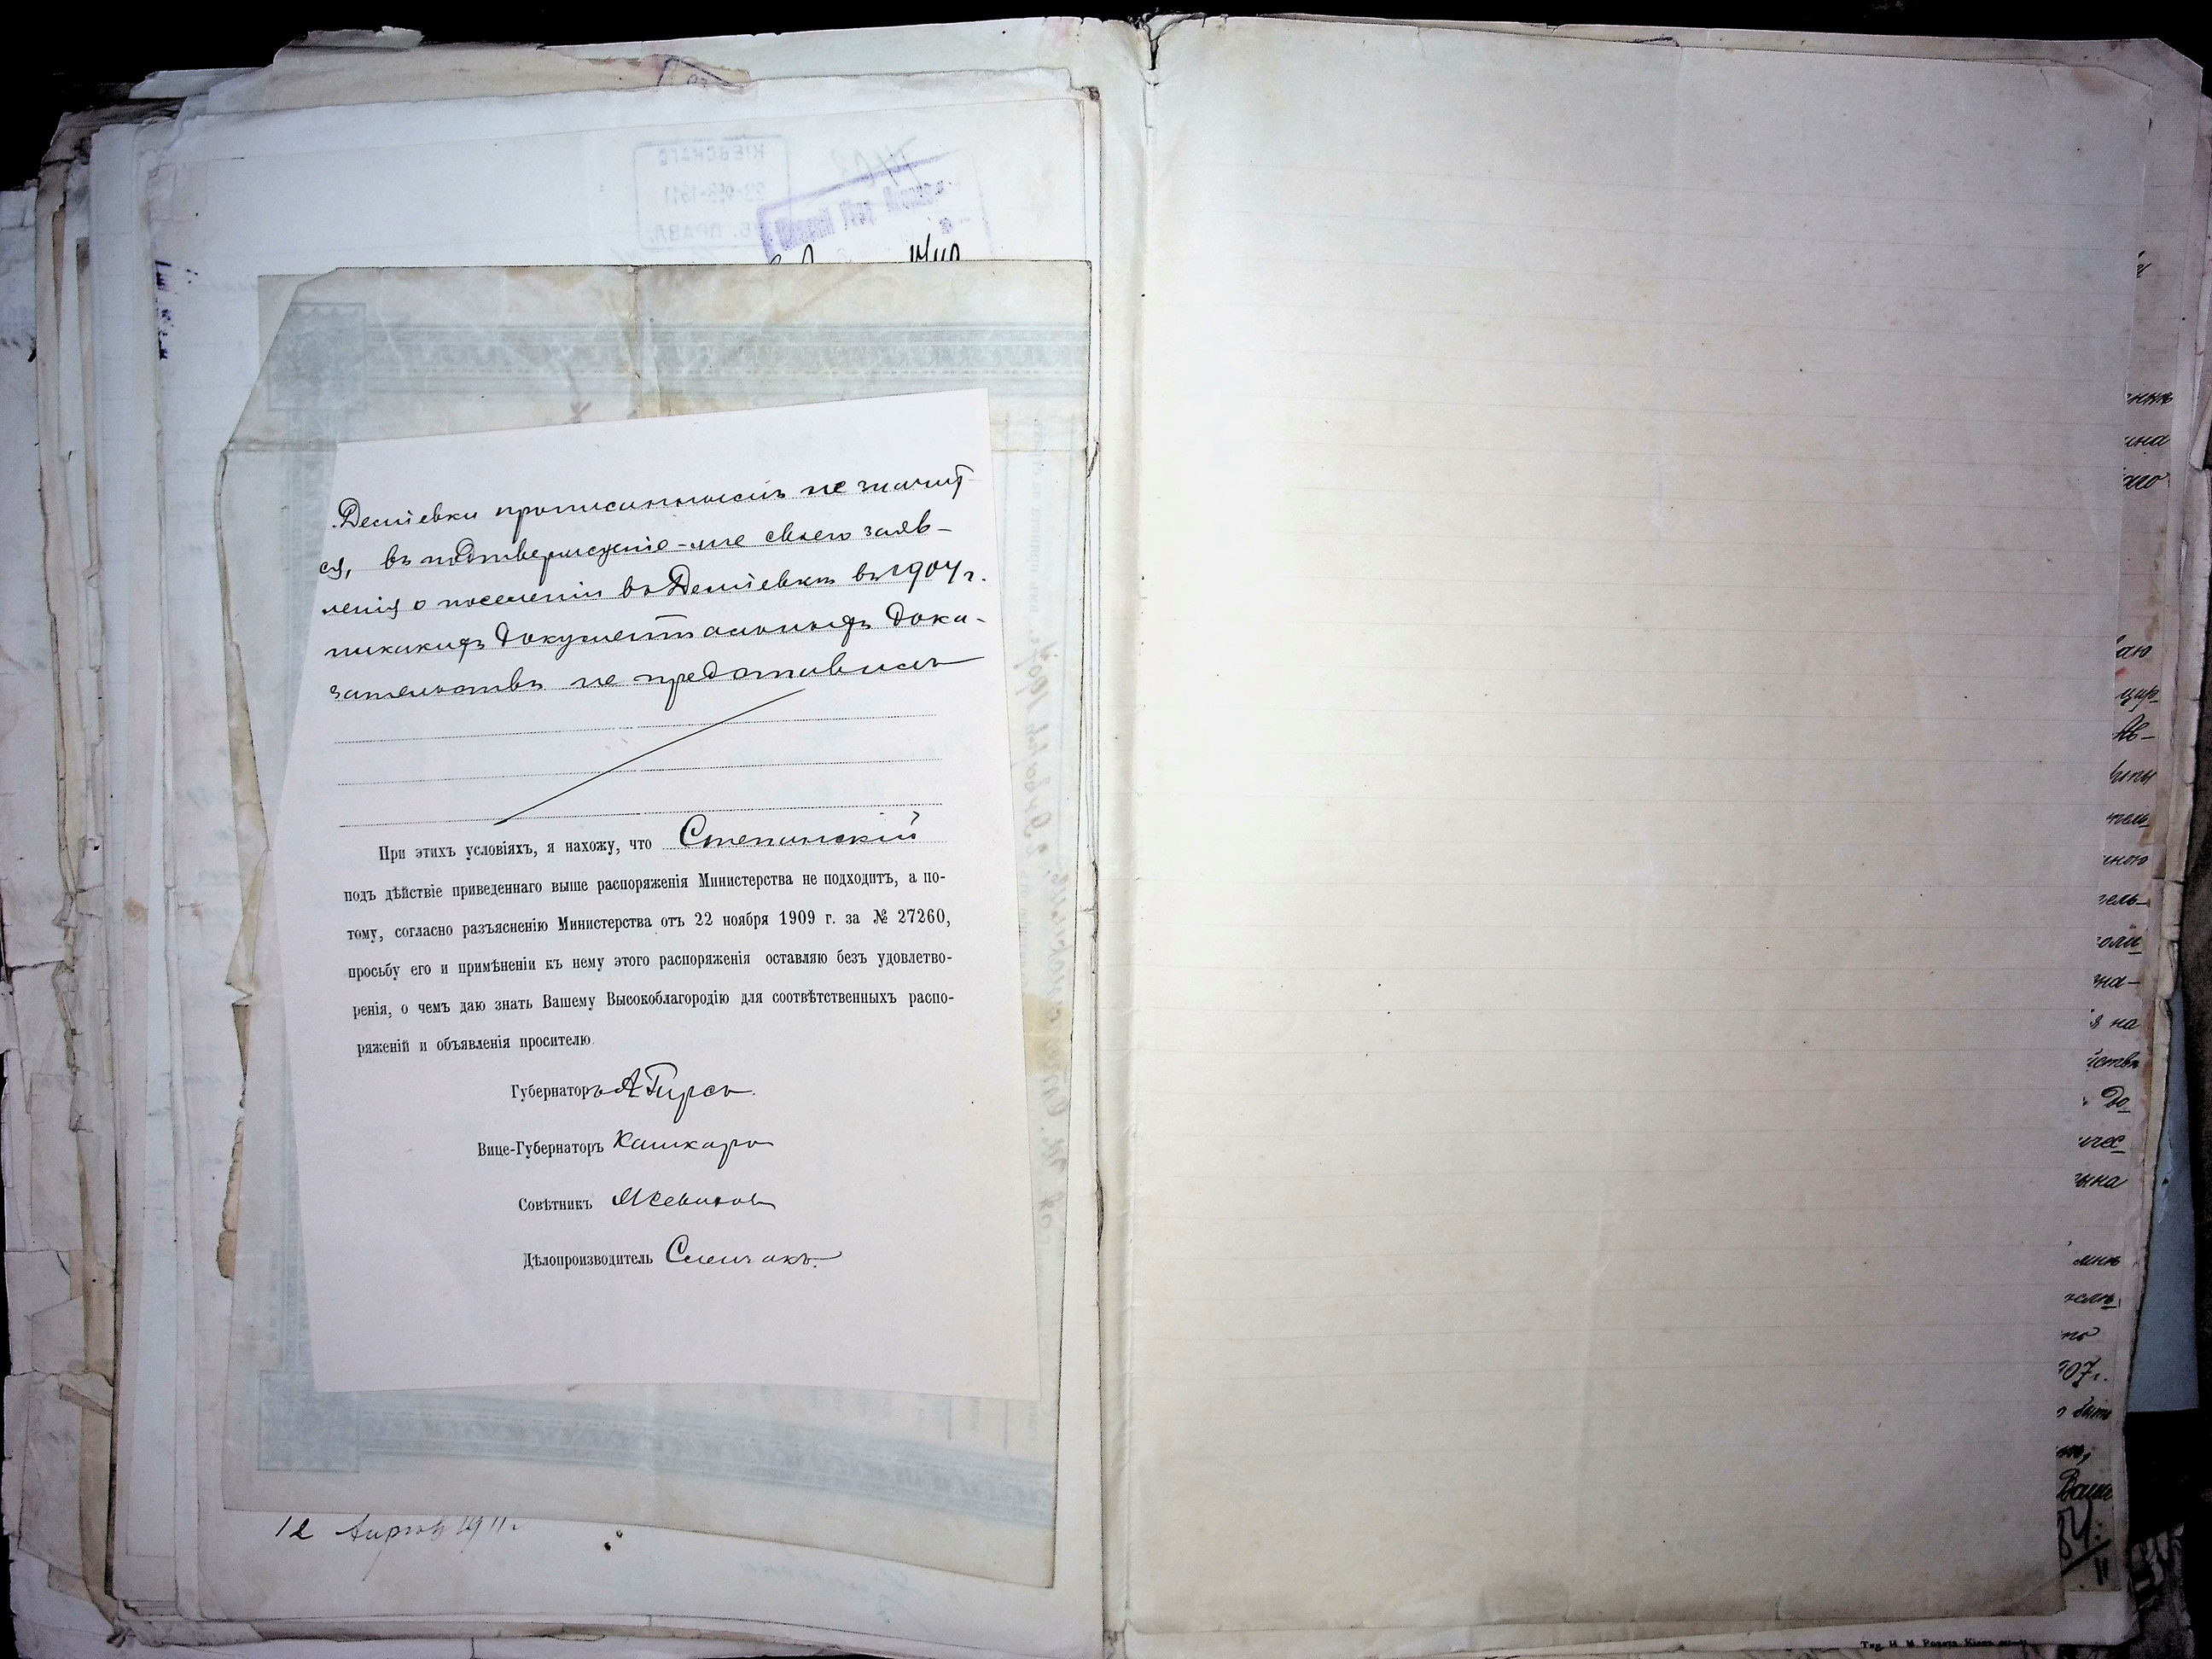 КІЕВСКАГО
1911
ПРАВЛ.
Деміевки прописаннымъ не значит
ся, въ подтвержденіе-же своего заяв-
ленія о поселеніи въ Деміевкѣ въ 1904 г.
никакихъ документальныхъ дока-
зательствъ не представилъ
При этихъ условіяхъ, я нахожу, что Степанскій
подъ дѣйствіе приведеннаго выше распоряженія Министерства не подходитъ, а по-
тому, согласно разъясненію Министерства отъ 22 ноября 1909 г. за № 27260,
просьбу его и примѣненіи къ нему этого распоряженія оставляю безъ удовлетво-
ренія, о чемъ даю знать Вашему Высокоблагородію для соотвѣтственныхъ распо-
ряженій и объявленія просителю.
Губернаторъ А Гирсъ.
Вице-Губернаторъ Кашкаро
Совѣтникъ
Дѣлопроизводитель
12 Апрѣля 1911 г.
аго
аю
Ав-
тель
ною
тель-
на-
я на
до
чес
на
мнѣ
по
907 г.
быть
Ваше
84
Тип. И. М. Розета Кіевъ